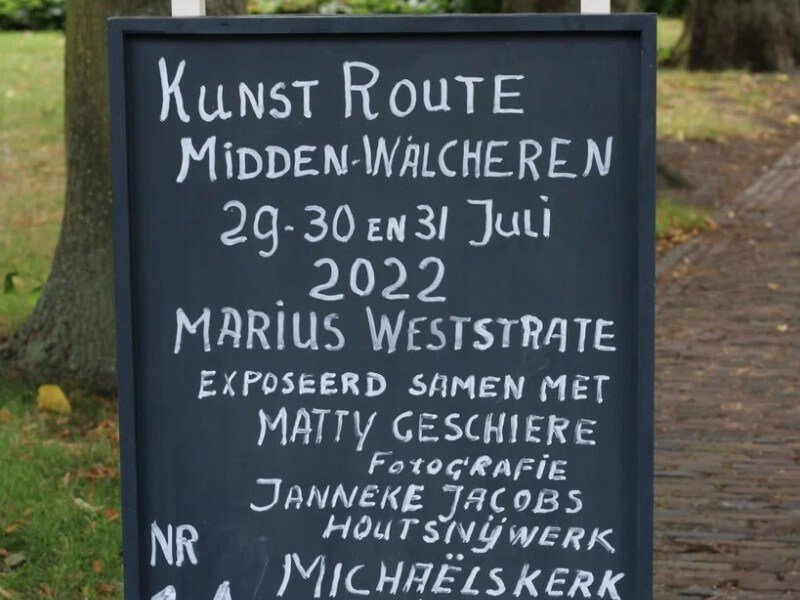 KUNST ROUTE
MIDDEN-WALCHEREN
29-30 EN 31 Juli
2022
MARIUS WESTSTRATE
EXPOSEERD SAMEN MET
MATTY GESCHIERE
FOTOGRAFIE
JANNEKE JACOBS
HOUTSNIJWERK
NR
MICHAËLSKERK